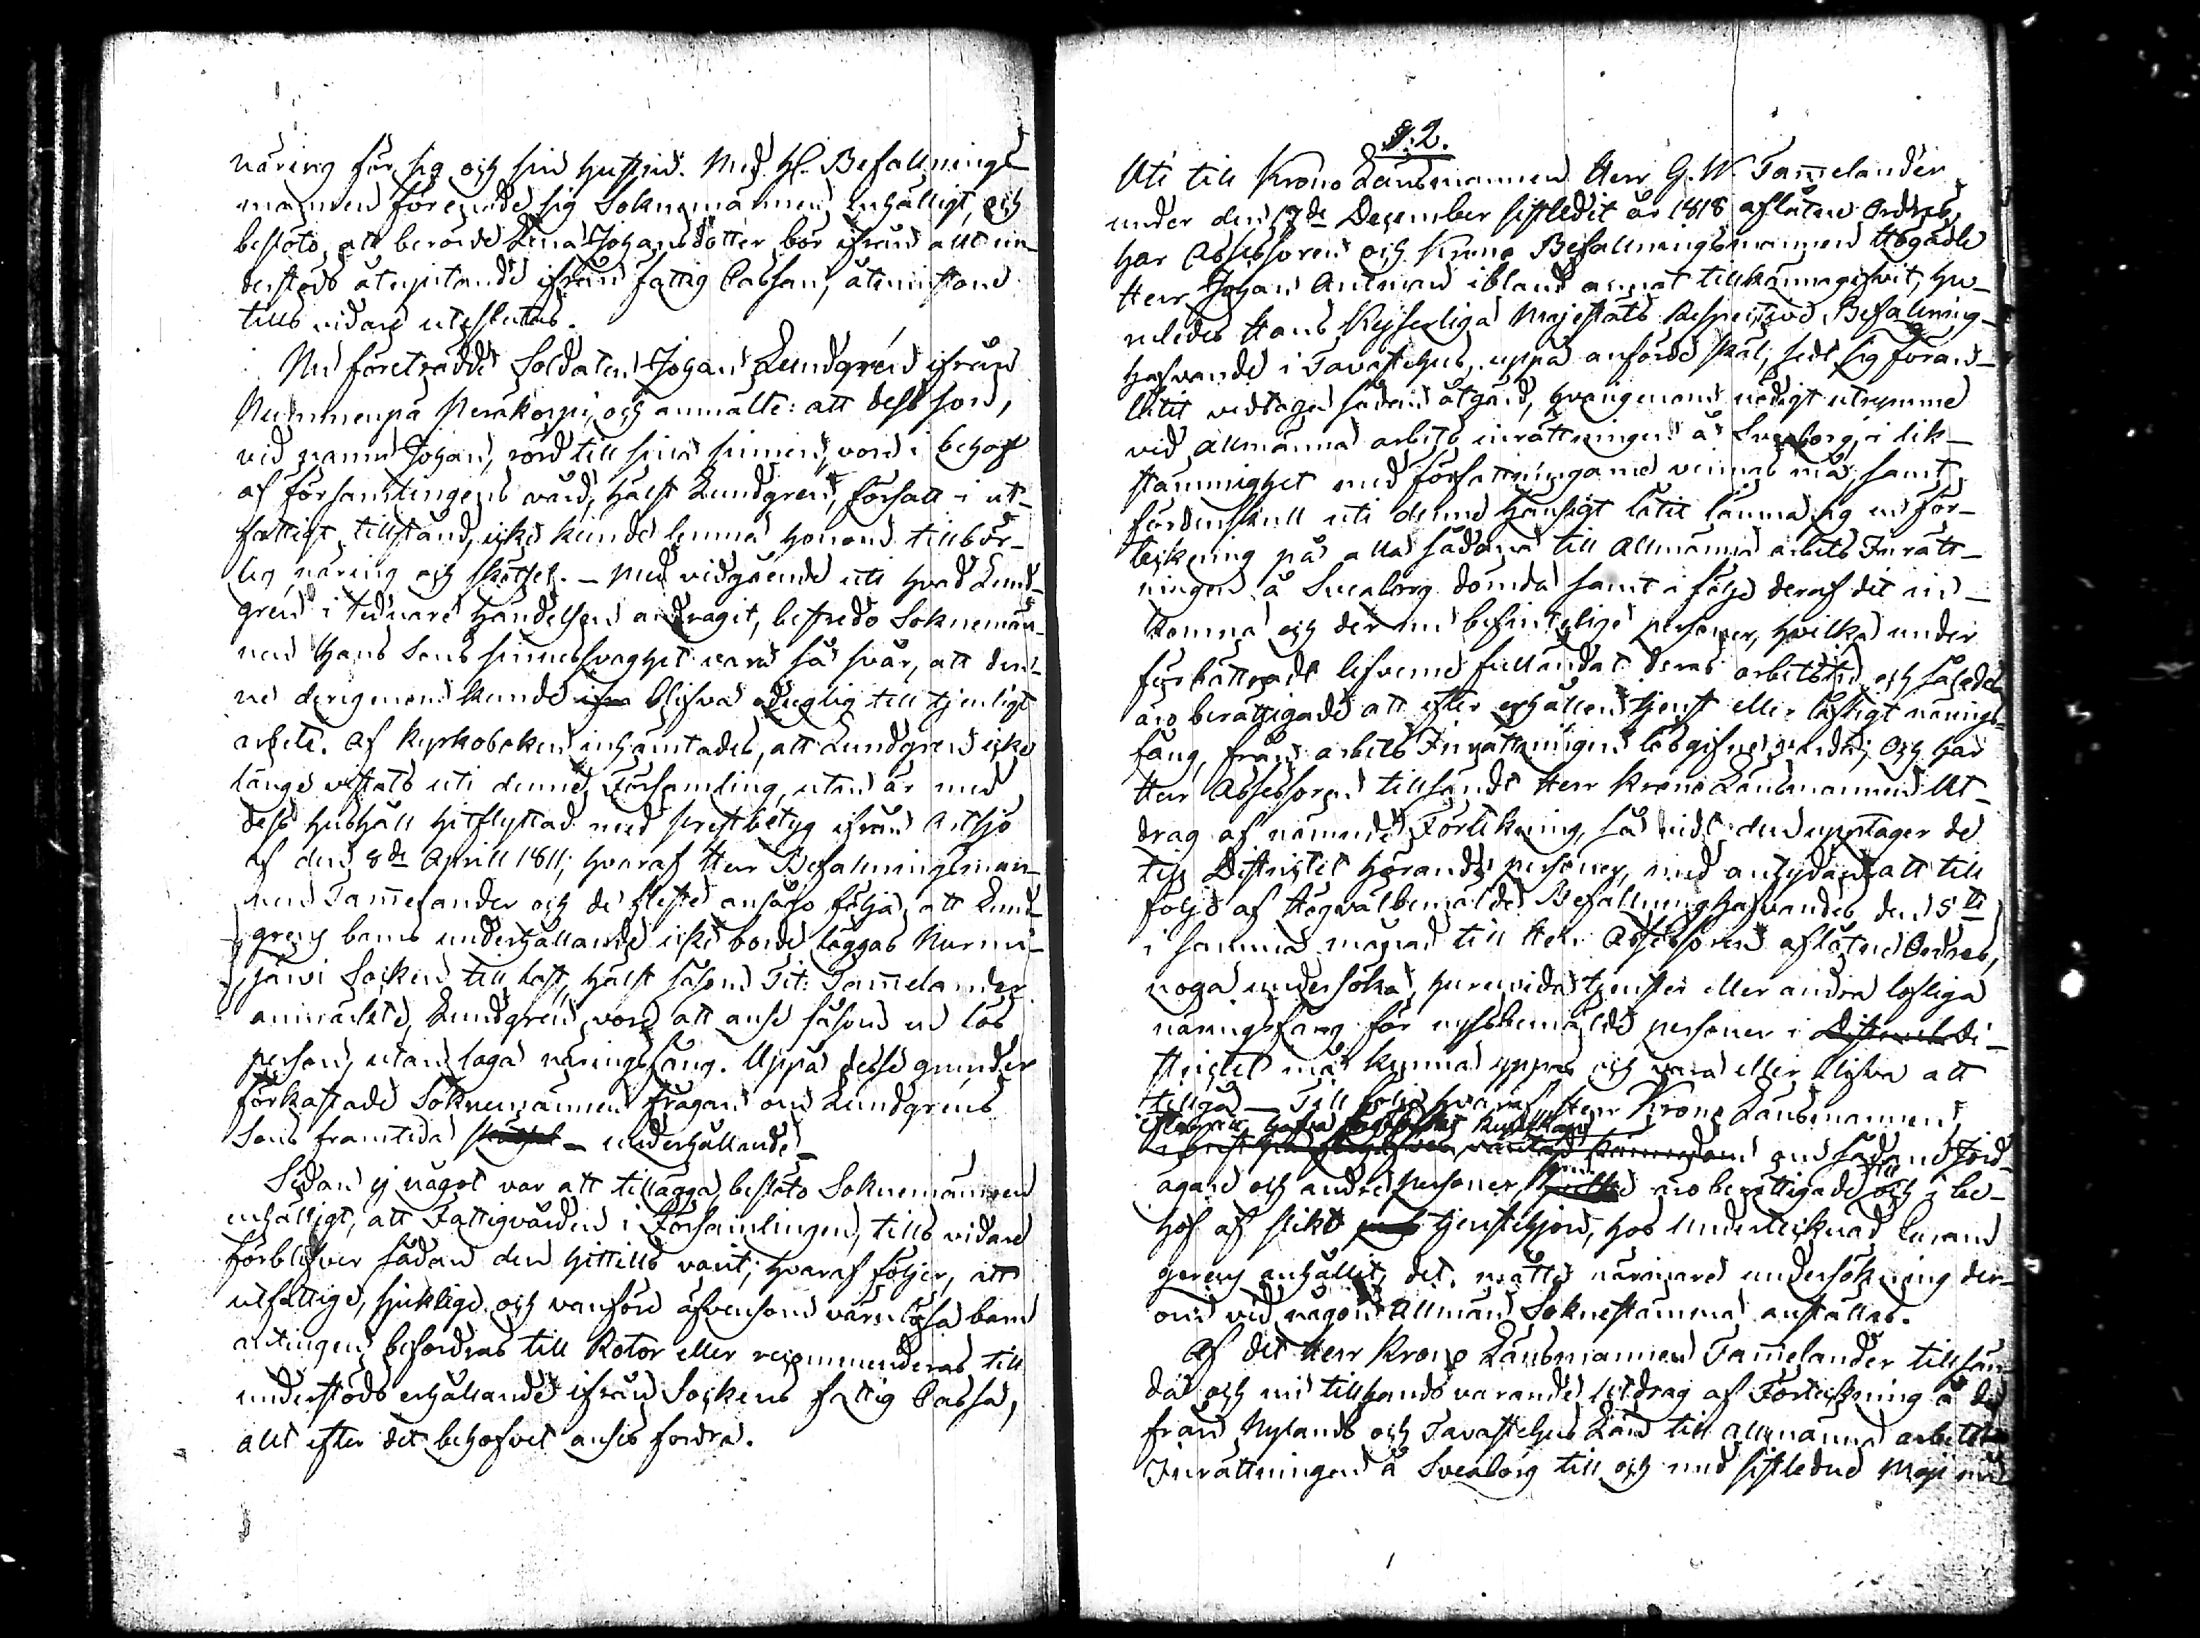 näring för sig och sin hustru. Med H. Befallnings
mannen förenade sig Soknemännen enhälligt, och
besloto, att berörde Lena Johansdotter bör ifrån allt un-
derstöds åtnjutande ifrån fattig Cassan, åtminstone
tills vidare uteslutas.
Nu företrädde Soldaten Johan Lundgrén ifrån
Nummenpä Peräkorpi, och anmälte: att dess son,
vid namn Johan, rörd till sina sinnen, vore i behof
af församlingens vård, hälst Lundgren, försatt i ut-
fattigt tillstånd, icke kunde lemna honom tillbör-
lig näring och skötsel. - Med vidgående uti hvad Lund-
gren i tidnare händelsen andragit, bestredo Soknemän-
nen Hans Sons sinnessvaghet vara så svår, att den-
ne derigenom kunde blifva oduglig till tjenligt
arbete. Af Kyrkoboken inhämtades, att Lundgren icke
länge vistats uti denne Församling, utan är med
dess hushåll hitflyttad med prestbetyg ifrån Artsjö
af den 8de Aprill 1811; hvaraf Herr Befallningsman-
nen Tam̄elander och de fleste ansågo följa, att Lund-
grens barns underhållande icke borde läggas Nurmi-
järvi Socken till last, hälst såsom Tit: Tam̄elander
anmärkte, Lundgren vore att anse såsom en lös
person, utan laga näringsfång. Uppå desse grunder
förkastade Soknemännen frågan om Lundgrens
Sons framtida - underhållande -
Sedan ej något var att tillägga, besloto Soknemännen
enhälligt, att Fattigvården i Församlingen, tills vidare
förblifver sådan den hittills varit; hvaraf följer, att
utfattige, sjuklige och vanföre äfvensom värnlösa barn
antingen befordras till Rotor eller recommenderas till
understöds erhållande ifrån Sockens fattig Cassa,
allt efter det behofvet anses fordra.
§. 2.
Uti till Krono Länsmannen Herr G. W. Tam̄elander
under den 17de December sistledit år 1818 aflåten Ordres,
har Assessoren och Krono Befallningsmannen Högädle
Herr Johan Antman ibland annat tillkännagifvit, hu-
ruledes Hans Kejserliga Majestäts Respective Befallning-
hafvande i Tavastehus, uppå anförde skäl, sedt sig föran-
låtit vidtaga sådan åtgärd, hvarigenom nödigt utrymme
vid Allmänna arbets inrättningen å Sveaborg, i lik-
stämmighet med författningarne vinnas må, samt
fördenskull uti denne hänsigt låtit lämna sig en för-
teckning på alla sådana till Allmänna arbets Inrätt-
ningen å Sveaborg dömda samt i följe deraf dit in-
komna och der nu befintelige personer, hvilka under
förbättradt lefverne fulländat deras arbetstid, och således
äro berättigade att efter erhållen tjenst eller lofligt närings-
fång, från arbets Inrättningen lösgifne varda; Och har
Herr Assessoren tillsändt Herr Krono Länsmannen Ut-
drag af nämnde Förtekning, så vidt den upptager de
till Districtet hörande personer, med antydan att till
följe af Högvälbemälde Befallninghafvandes den 5te
i samma månad till Herr Assessoren aflåtne Ordres,
noga undersöka, huruvida tjenster eller andra lofliga
näringsfång för nyssbemälde personer i Di-
strictet må kunna yppas och vara eller blifva att
tillgå - Till följe hvaraf Herr Krono Länsmannen,
om sådane Jord-
ägare och andre personer, som äro berättigade till och i be-
hof af slikt tjenstehjon, hos Undertecknad
anhållit, det måtte närmare undersökning der-
om vid någon Allmän Soknestämma anställas.
Af det Herr Krono Länsmannen Tam̄elander tillsän-
da och nu tillhands varande Utdrag af Förteckning å de
från Nylands och Tavastehus Län till allmänna arbets
Inrättningen å Sveaborg till och med sistledne Maji